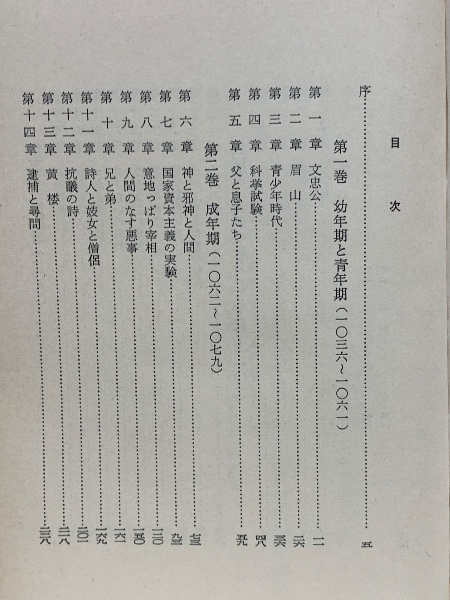 目次
序……五
第一巻 幼年期と青年期（一〇三六～一〇六一）
第一章 文忠公……一一
第二章 眉山……二六
第三章 青少年時代……三六
第四章 科挙試験……四八
第五章 父と息子たち……五九
第二巻 成年期（一〇六二～一〇七九）
第六章 神と邪神と人間……七三
第七章 国家資本主義の実験……九三
第八章 意地っぱり宰相……
第九章 人間のなす悪事……
第十章 兄と弟……
第十一章 詩人と妓女と僧侶……一六九
第十二章 抗議の詩……
第十三章 黄楼……二一八
第十四章 逮捕と尋問……